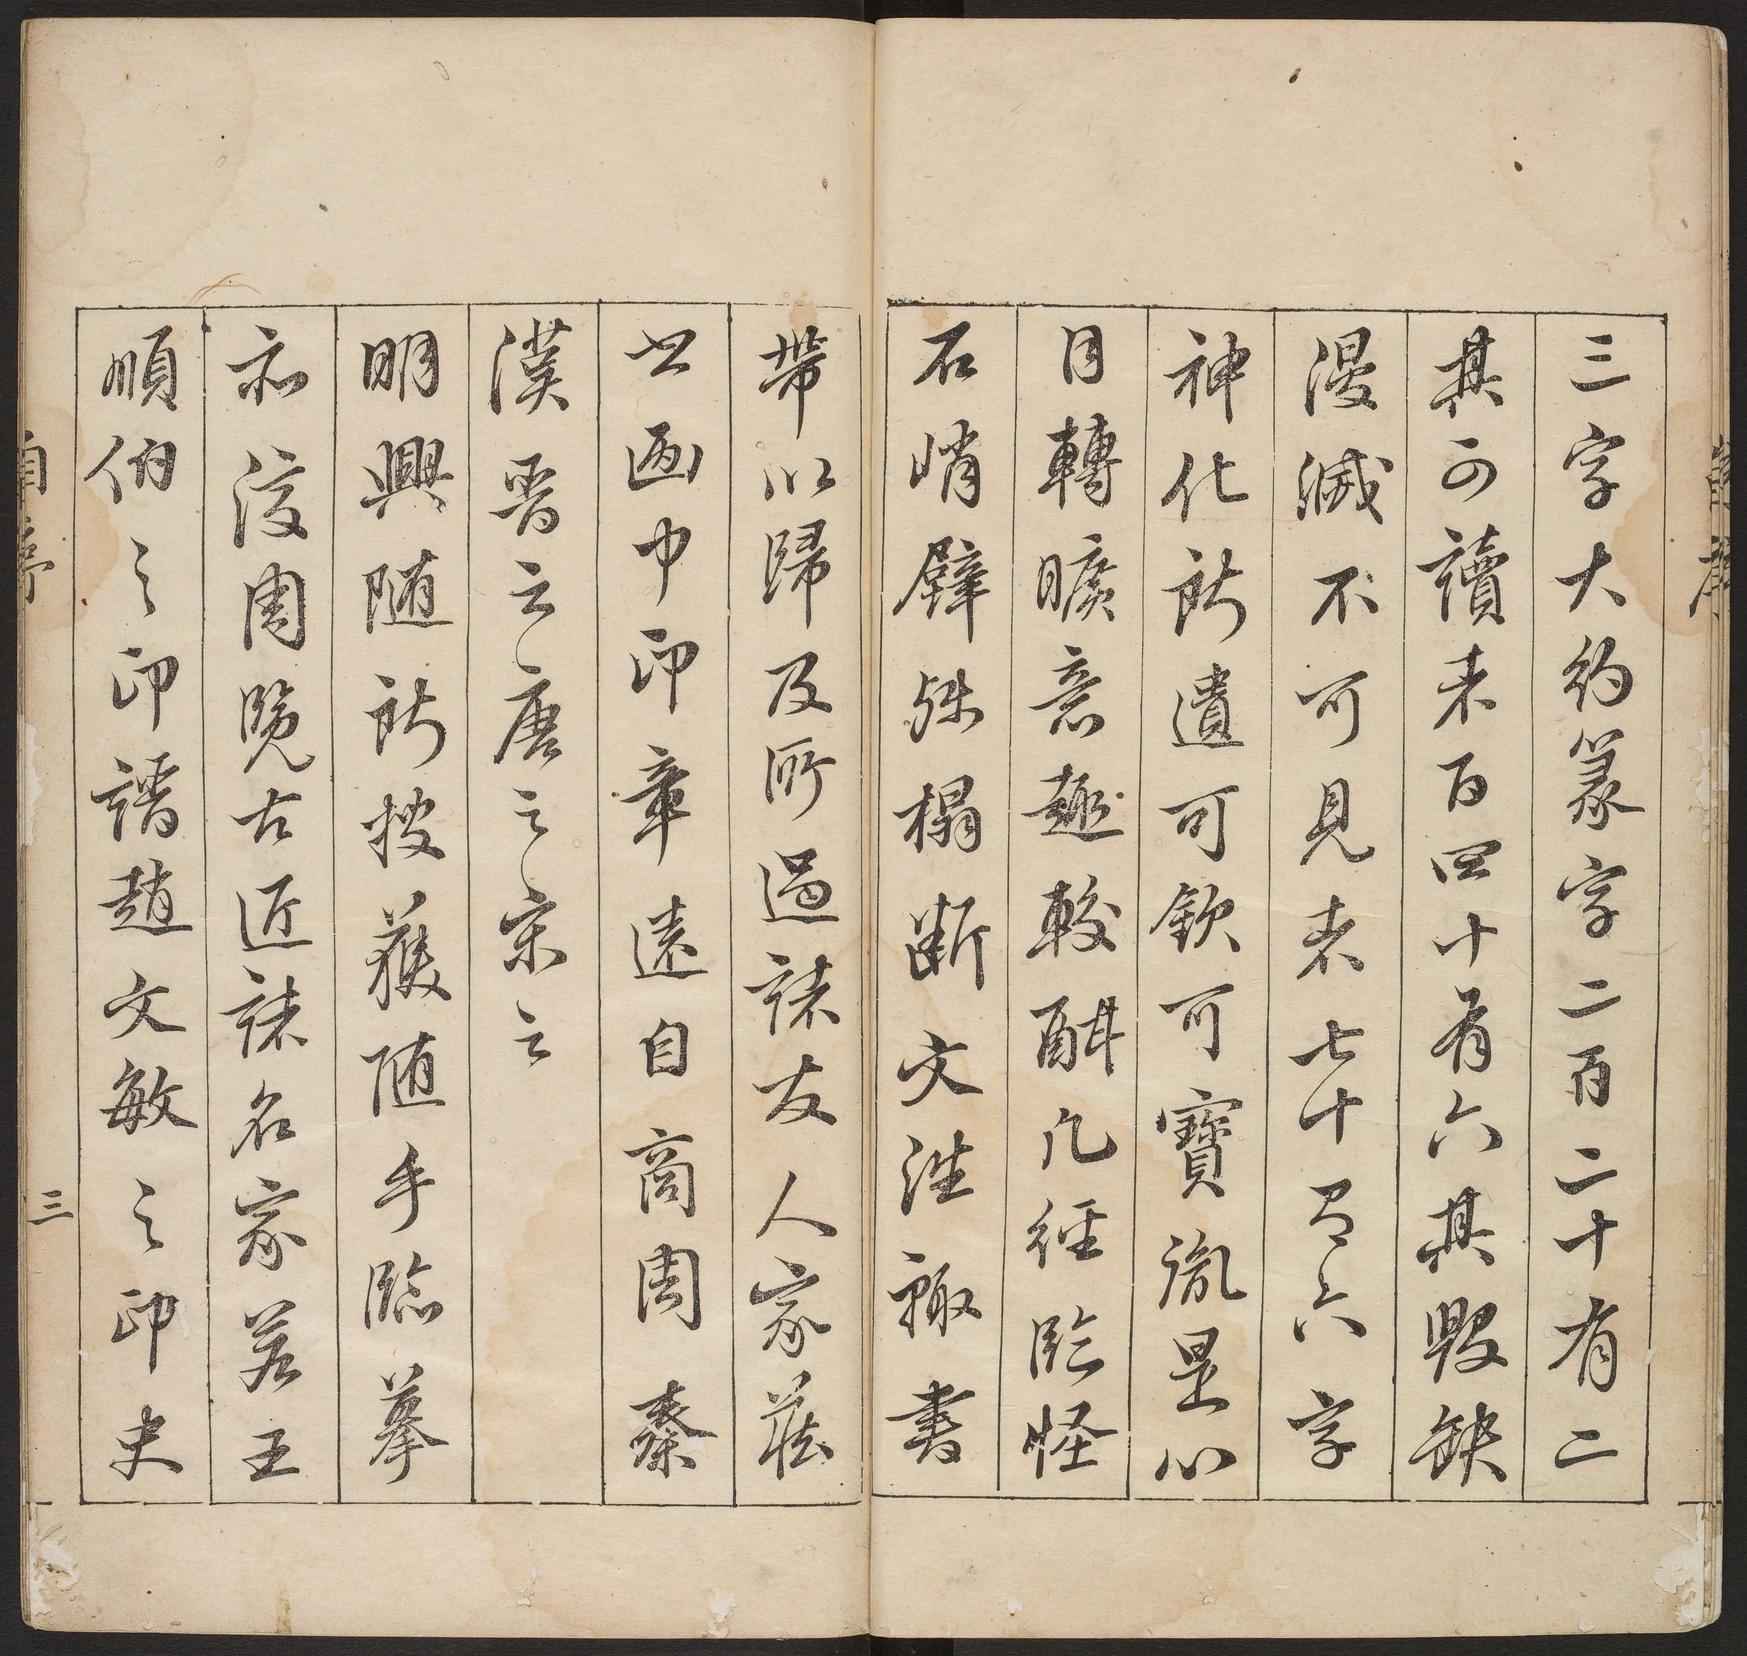 三字大約篆字二百二十有二
其可讀者百四十有六其毀缺
漫滅不可見者七十有六字
神化所遺可欽可寶胤是心
目轉曠意趣較酣凡經臨怪
石峭壁殊榻斷文洼輙書
帶以歸及所過諸友人家藏
書画中印章遠自商周秦
漢晋之唐之宋之
明興隨所搜獲隨手臨摹
示後周覽古近諸名家若王
順伯之印譜趙文敏之印史
自序
三